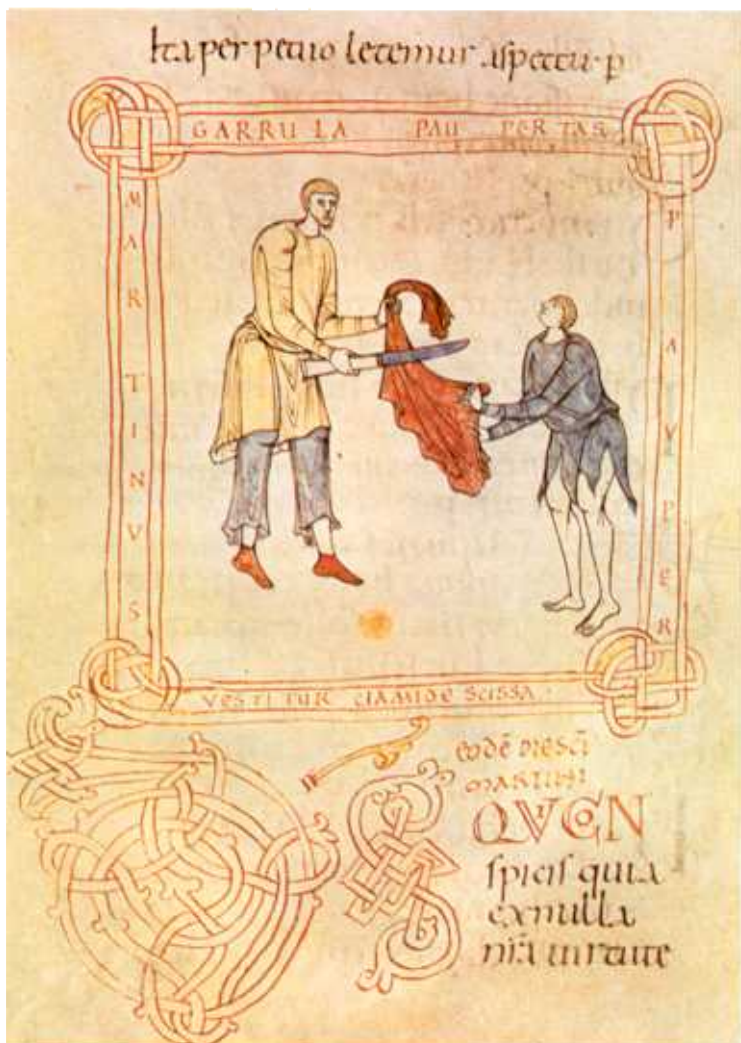 ita perpetuo letemur aspectu · p
GARRULA PAU PERTAS
MARTINVS
PAVPER
VESTITUR CLAMIDE SCISSA ·
eodē die scī
MARTINI
QVI CON
spicis quia
ex nulla
nr̄a uirtute